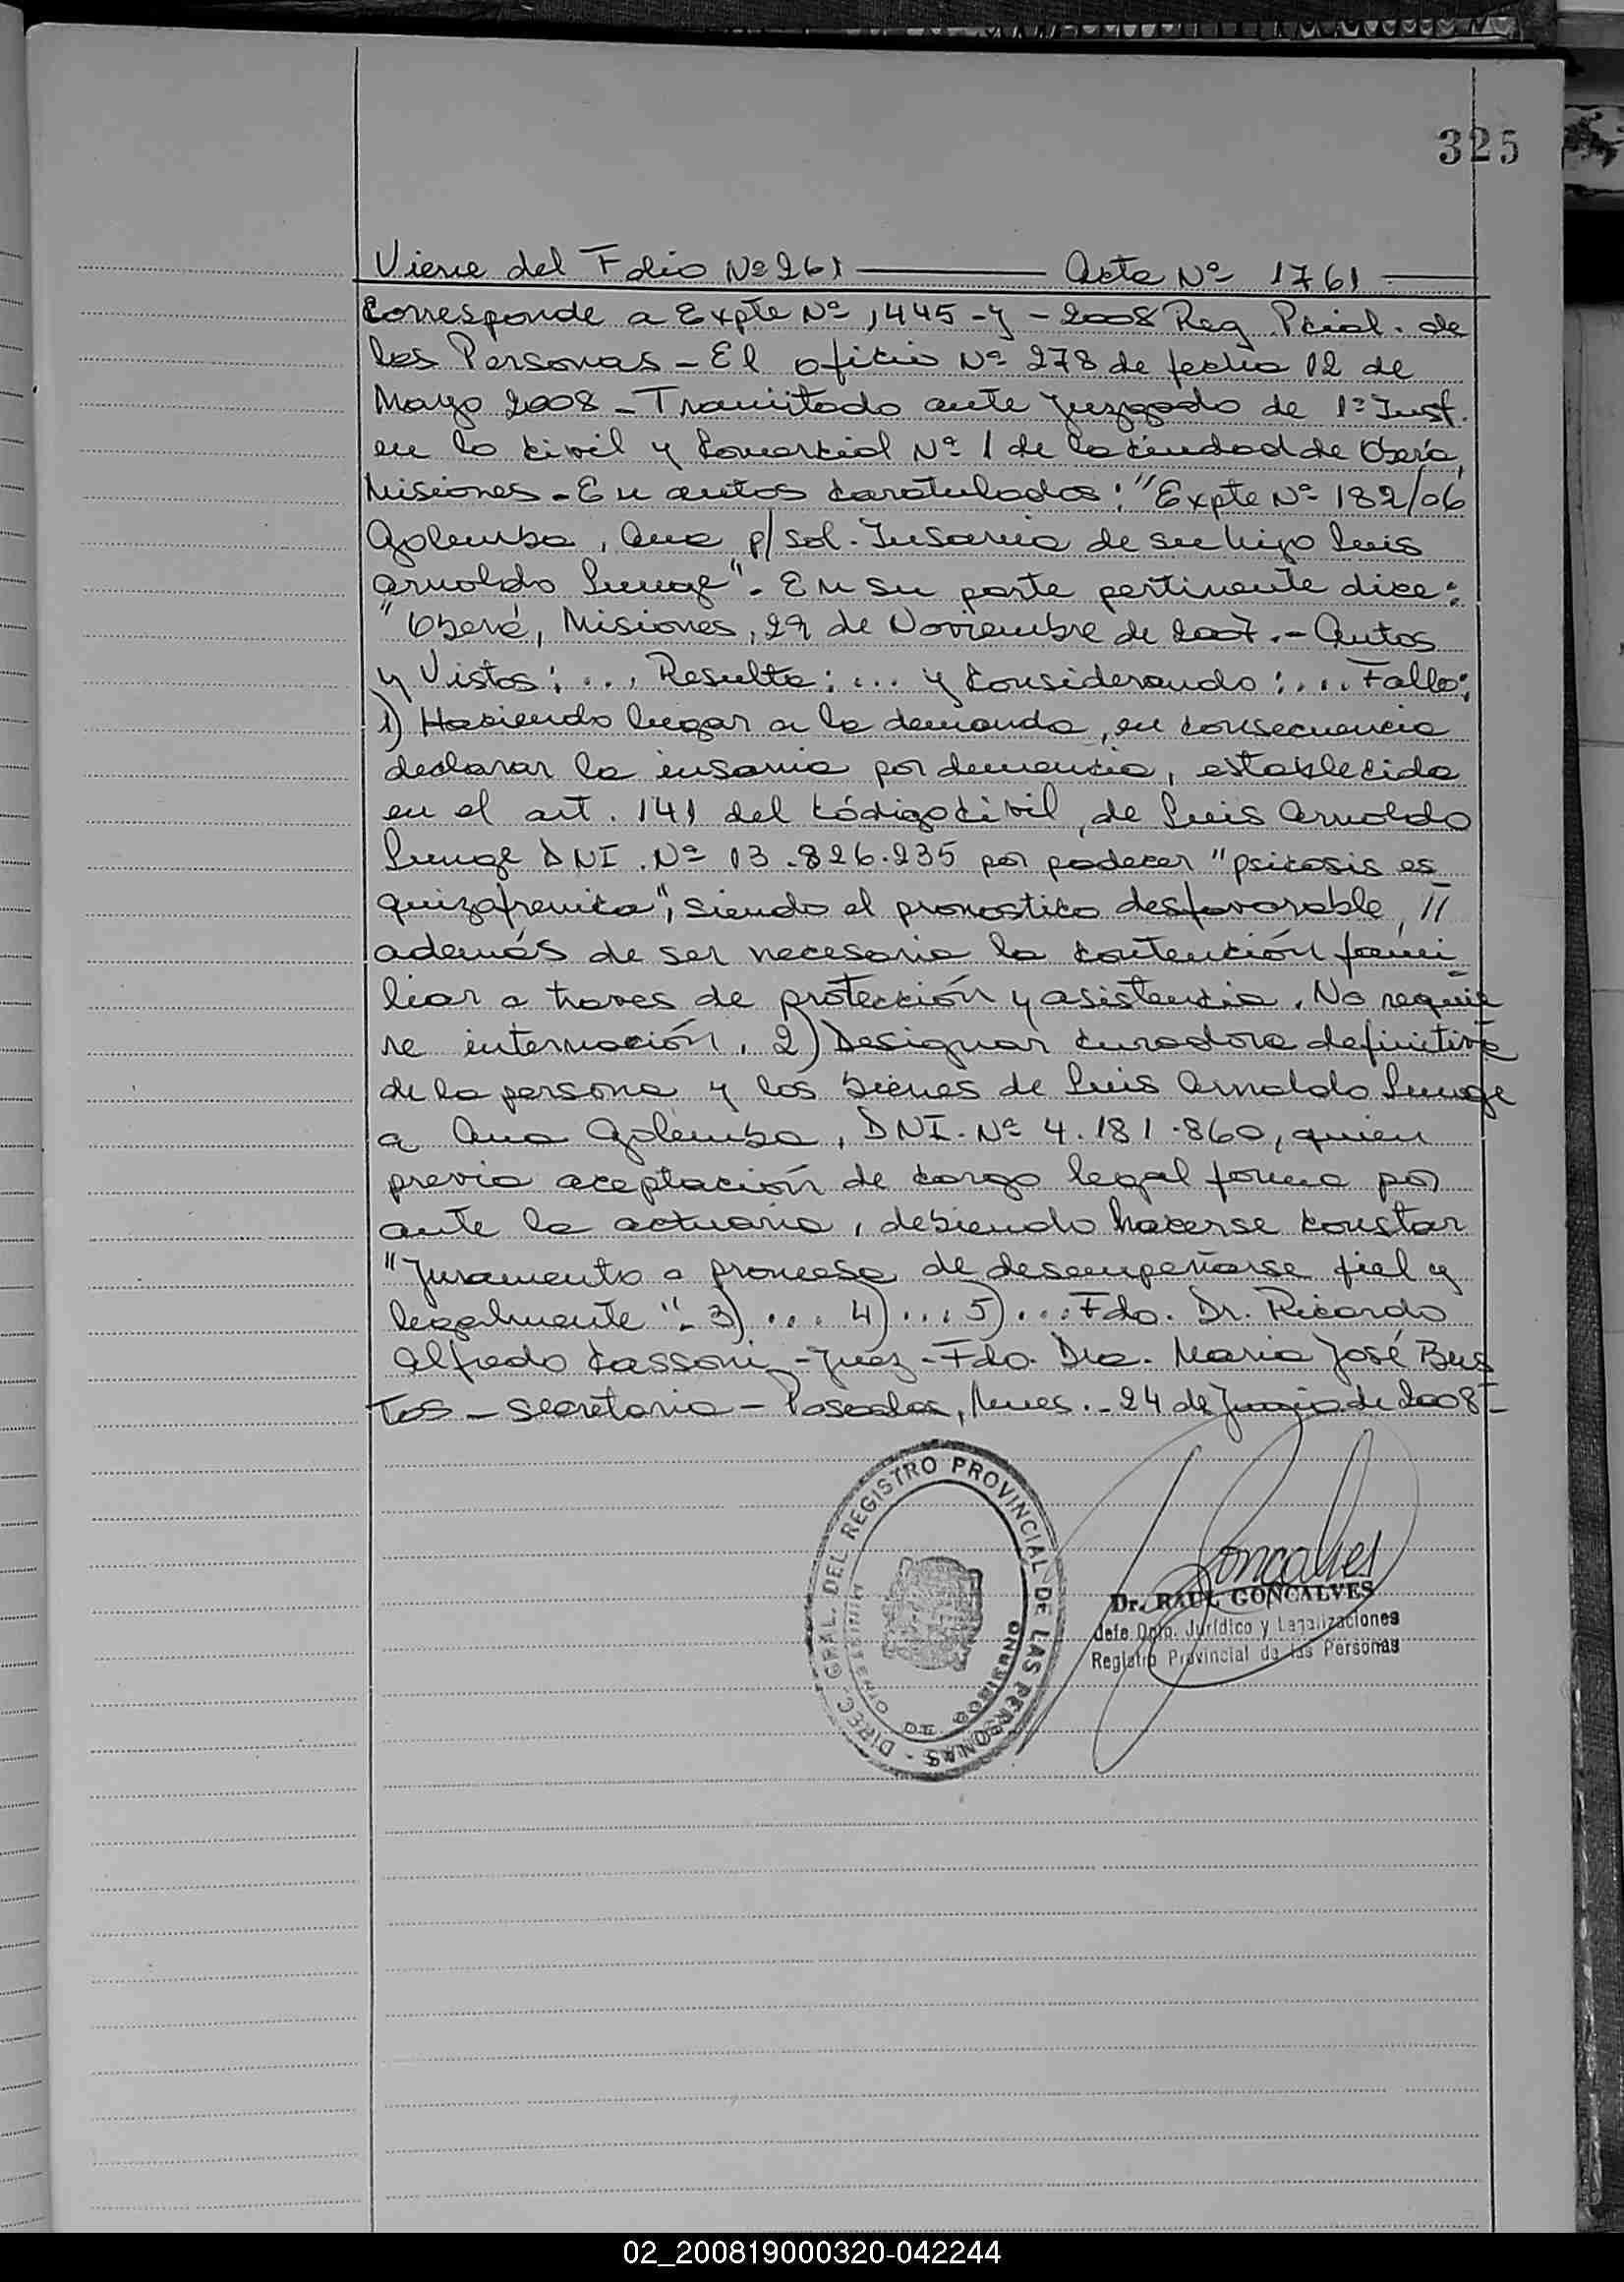 325
Viene del Folio Nº 261 ——— Acta Nº 1761 ——
Corresponde a Expte Nº 1445-Y-2008 Reg. Pcial. de
las Personas - El oficio Nº 278 de fecha 12 de
Mayo 2008 - Tramitado ante Juzgado de 1ª Inst.
en lo Civil y Comercial Nº 1 de la ciudad de Oberá,
Misiones - En autos caratulados: "Expte Nº 182/06
Golemba, Ana p/ sol. Insania de su hijo Luis
Arnoldo". En su parte pertinente dice:
"Oberá, Misiones, 29 de Noviembre de 2007.- Autos
y Vistos: ... Resulta: ... y Considerando: ... Fallo:
1) Haciendo lugar a la demanda, en consecuencia
declarar la insania por demencia, establecida
en el art. 141 del Código Civil, de Luis Arnoldo
DNI. Nº 13.826.235 por padecer "psicosis es
quizofrenica", siendo el pronostico desfavorable, //
además de ser necesario la contención fami-
liar a traves de protección y asistencia. No requie
re internación. 2) Designar curadora definitiva
de la persona y los bienes de Luis Arnoldo
a Ana Golemba, DNI. Nº 4.181.860, quien
previa aceptación de cargo legal forma por
ante la actuaria, debiendo hacerse constar
"Juramento o promesa de desempeñarse fiel y
legalmente". 3) ... 4) ... 5) ... Fdo. Dr. Ricardo
Alfredo Cassoni - Juez - Fdo. Dra. Maria José Bus
tos - secretaria - Posadas, Mnes. - 24 de Junio de 2008 -
DIREC. GRAL. DEL REGISTRO PROVINCIAL DE LAS PERSONAS -
MINISTERIO DE GOBIERNO
Goncalves
Dr. RAUL GONCALVES
Jefe Dpto. Jurídico y Legalizaciones
Registro Provincial de las Personas
02_200819000320-042244